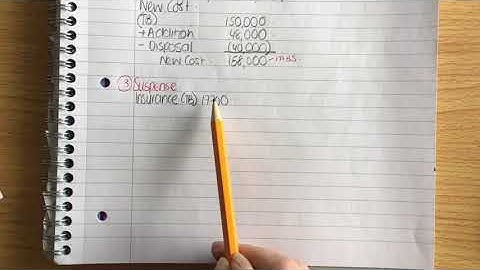 New Cost.
(TB) 150,000
+ Addition 48,000
- Disposal (40,000)
New Cost 158,000 - IMBS
③ Suspense
Insurance (TB)